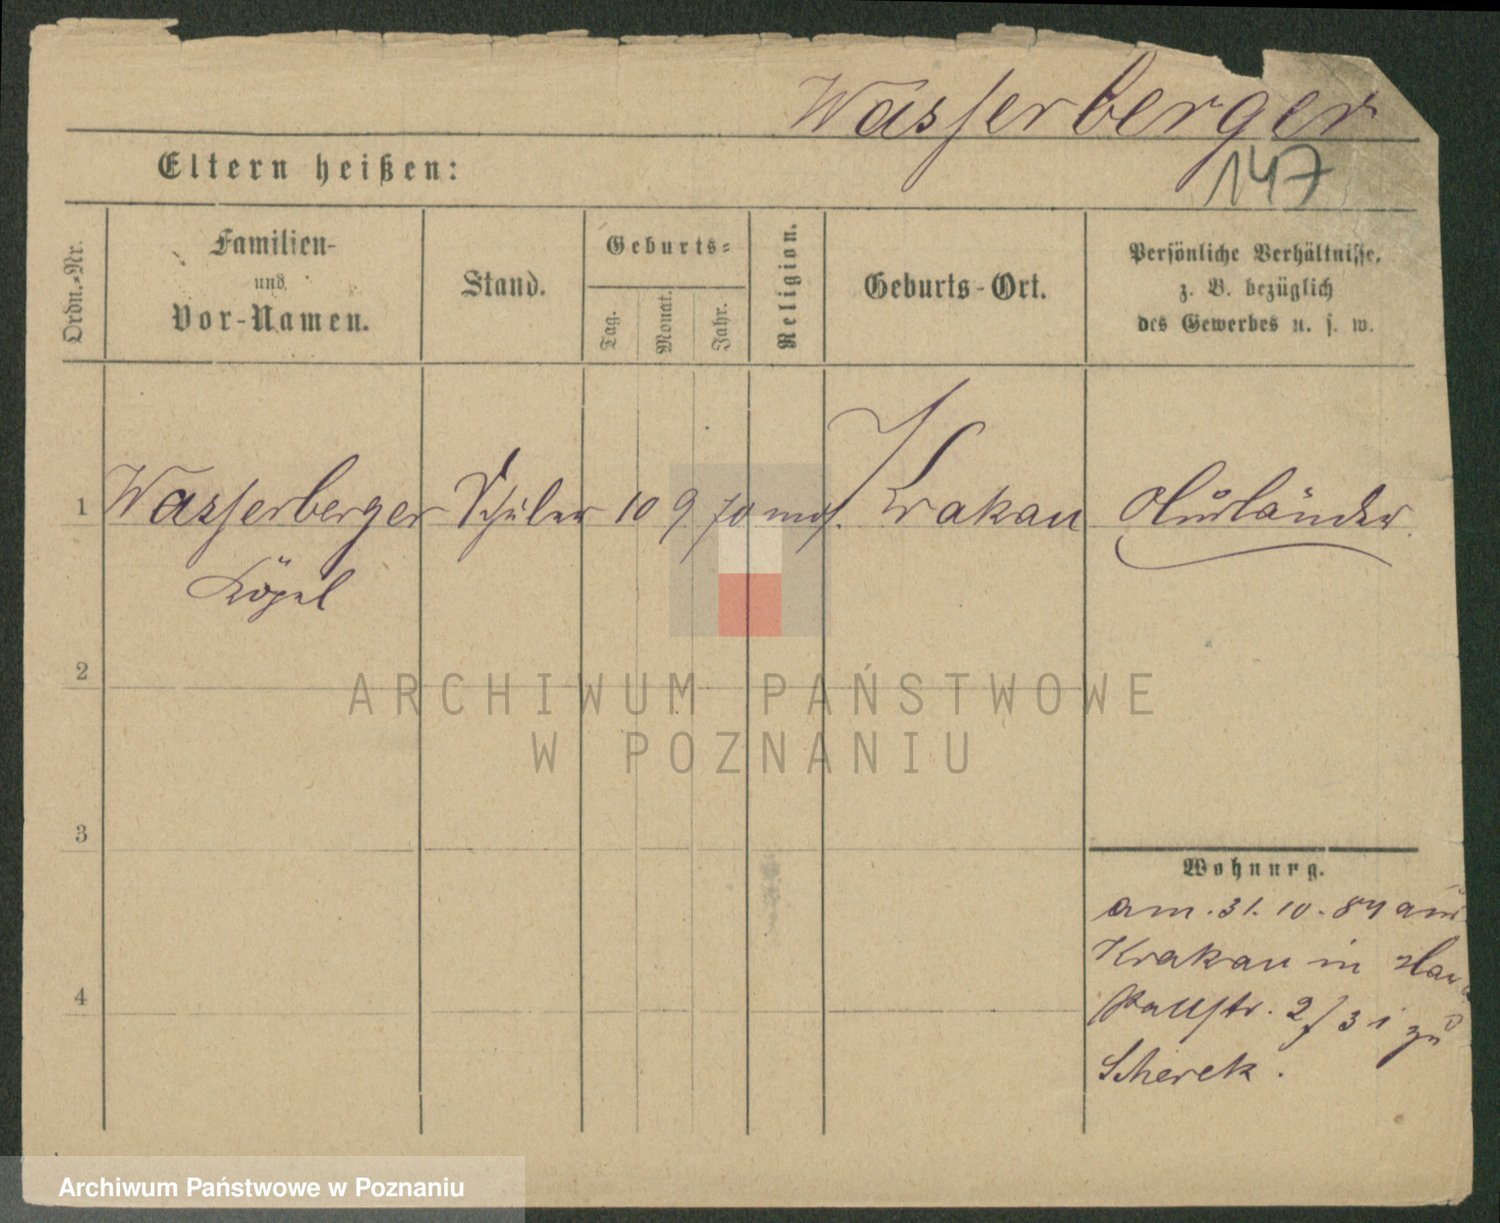 Wasserberger
Eltern heißen:
147
Ordn.-Nr.
Familien-
und
Vor-Namen.
Stand.
Geburts-
Tag.
Monat.
Jahr.
Religion.
Geburts-Ort.
Persönliche Verhältnisse,
z. B. bezüglich
des Gewerbes u. s. w.
1 Wasserberger Schüler 10 9 70 mos. Krakau Ausländer
2
3
4
Wohnurg.
am 31. 10. 84 aus
Krakau in
Wallstr. 2/3 i zu
ARCHIWUM PAŃSTWOWE
W POZNANIU
Archiwum Państwowe w Poznaniu